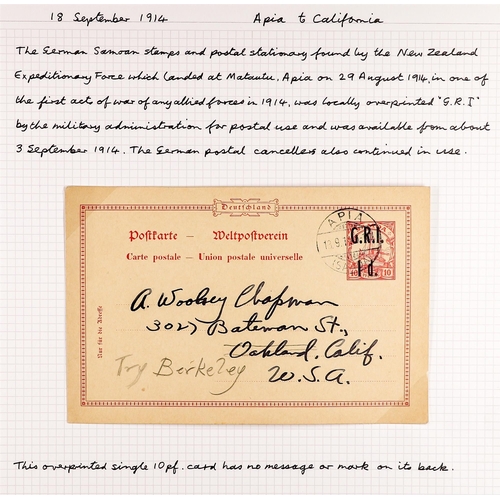 18 September 1914 Apia to California
The German Samoan stamps and postal stationary found by the New Zealand
Expeditionary Force which landed at Matautu, Apia on 29 August 1914, in one of
the first acts of war of any allied forces in 1914, was locally overprinted "G.R.I"
by the military administration for postal use and was available from about
3 September 1914. The German postal cancellers also continued in use.
Deutschland
Postkarte – Weltpostverein
Carte postale – Union postale universelle
APIA
G.R.I.
1 d.
10 10
Nur für die Adresse
A. Woolsey Chapman
3027 Bateman St.,
Oakland, Calif.
Try Berkeley
U.S.A.
This overprinted single 10pf. card has no message or mark on its back.